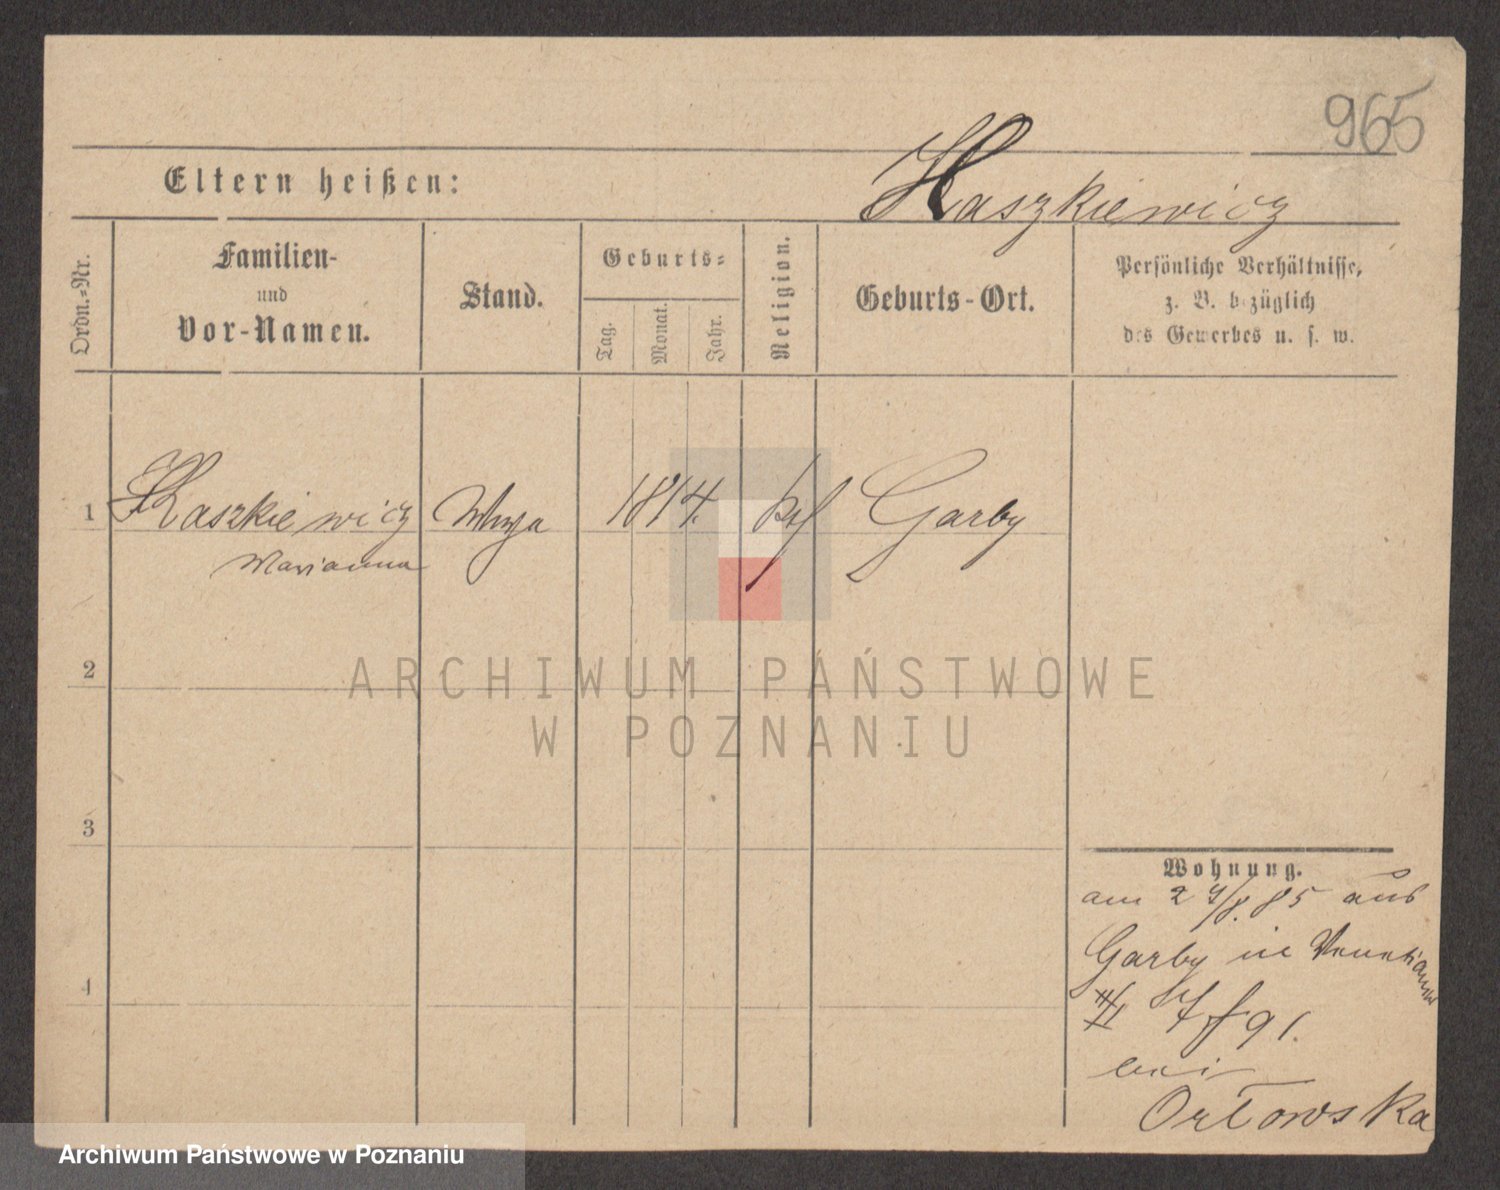 965
Eltern heißen:
Haszkiewicz
Ordn.-Nr.
Familien-
und
Vor-Namen.
Stand.
Geburts-
Tag.
Monat.
Jahr.
Religion.
Geburts-Ort.
Persönliche Verhältnisse,
z. B. bezüglich
des Gewerbes u. s. w.
1 Haszkiewicz 1814. ktf Garby
Marianna
2
3
4
Wohnung.
am 24/8. 85 aus
Garby in
91.
bei
Orłowska
ARCHIWUM PAŃSTWOWE
W POZNANIU
Archiwum Państwowe w Poznaniu